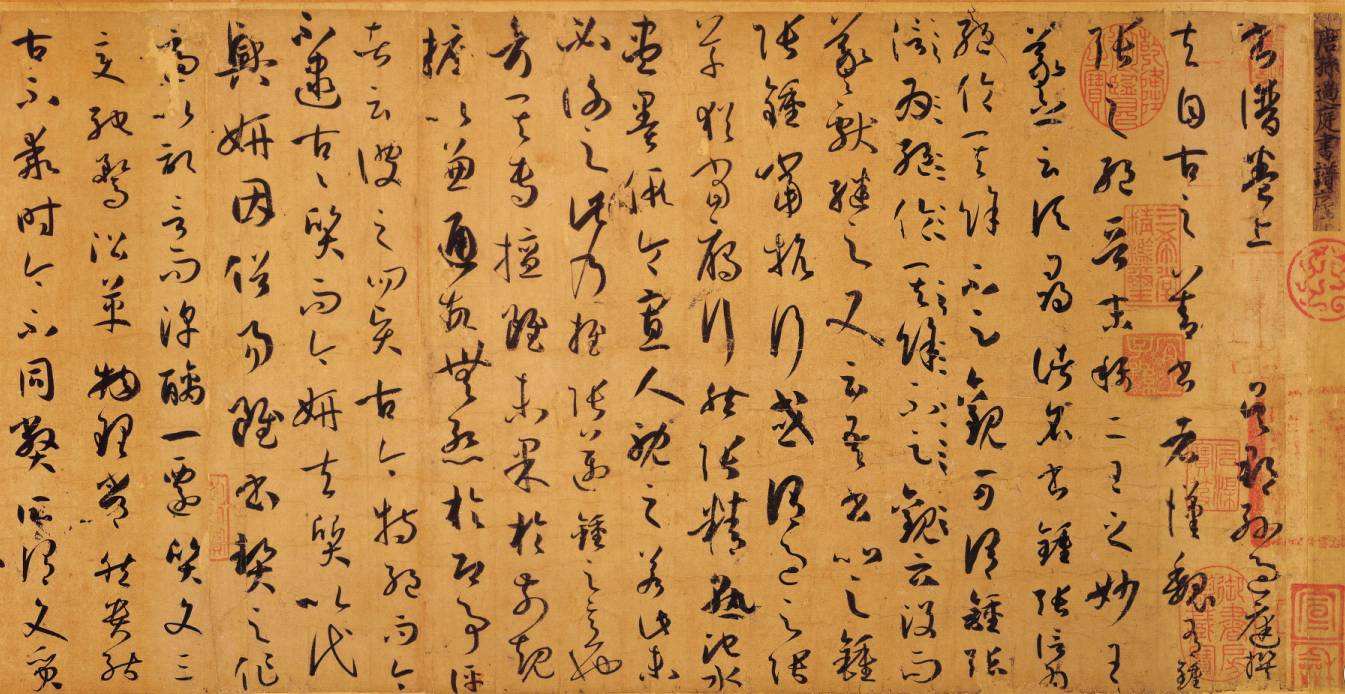 唐孫過庭書譜序
書譜卷上 吳郡孫過庭撰
夫自古之善書者漢魏有鍾
張之絕晉末稱二王之妙王
羲之云頃尋諸名書鍾張信為
絕倫其餘不足觀可謂鍾張
信為絕倫其餘不足觀云沒而
羲獻繼之又云吾書比之鍾
張鍾當抗行或謂過之張
草猶當鴈行然張精熟池水
盡墨假令寡人耽之若此未
必謝之此乃推張邁鍾之意也
考其專擅雖未果於前規
摭以兼通故無慙於即事評
者云彼之四賢古今特絕而今
不逮古古質而今妍夫質以代
興妍因俗易雖書契之作
適以記言而淳醨一遷質文三
變馳騖沿革物理常然貴能
古不乖時今不同弊所謂文質
乾隆御覽之寶
三希堂精鑑璽
宜子孫
宣和